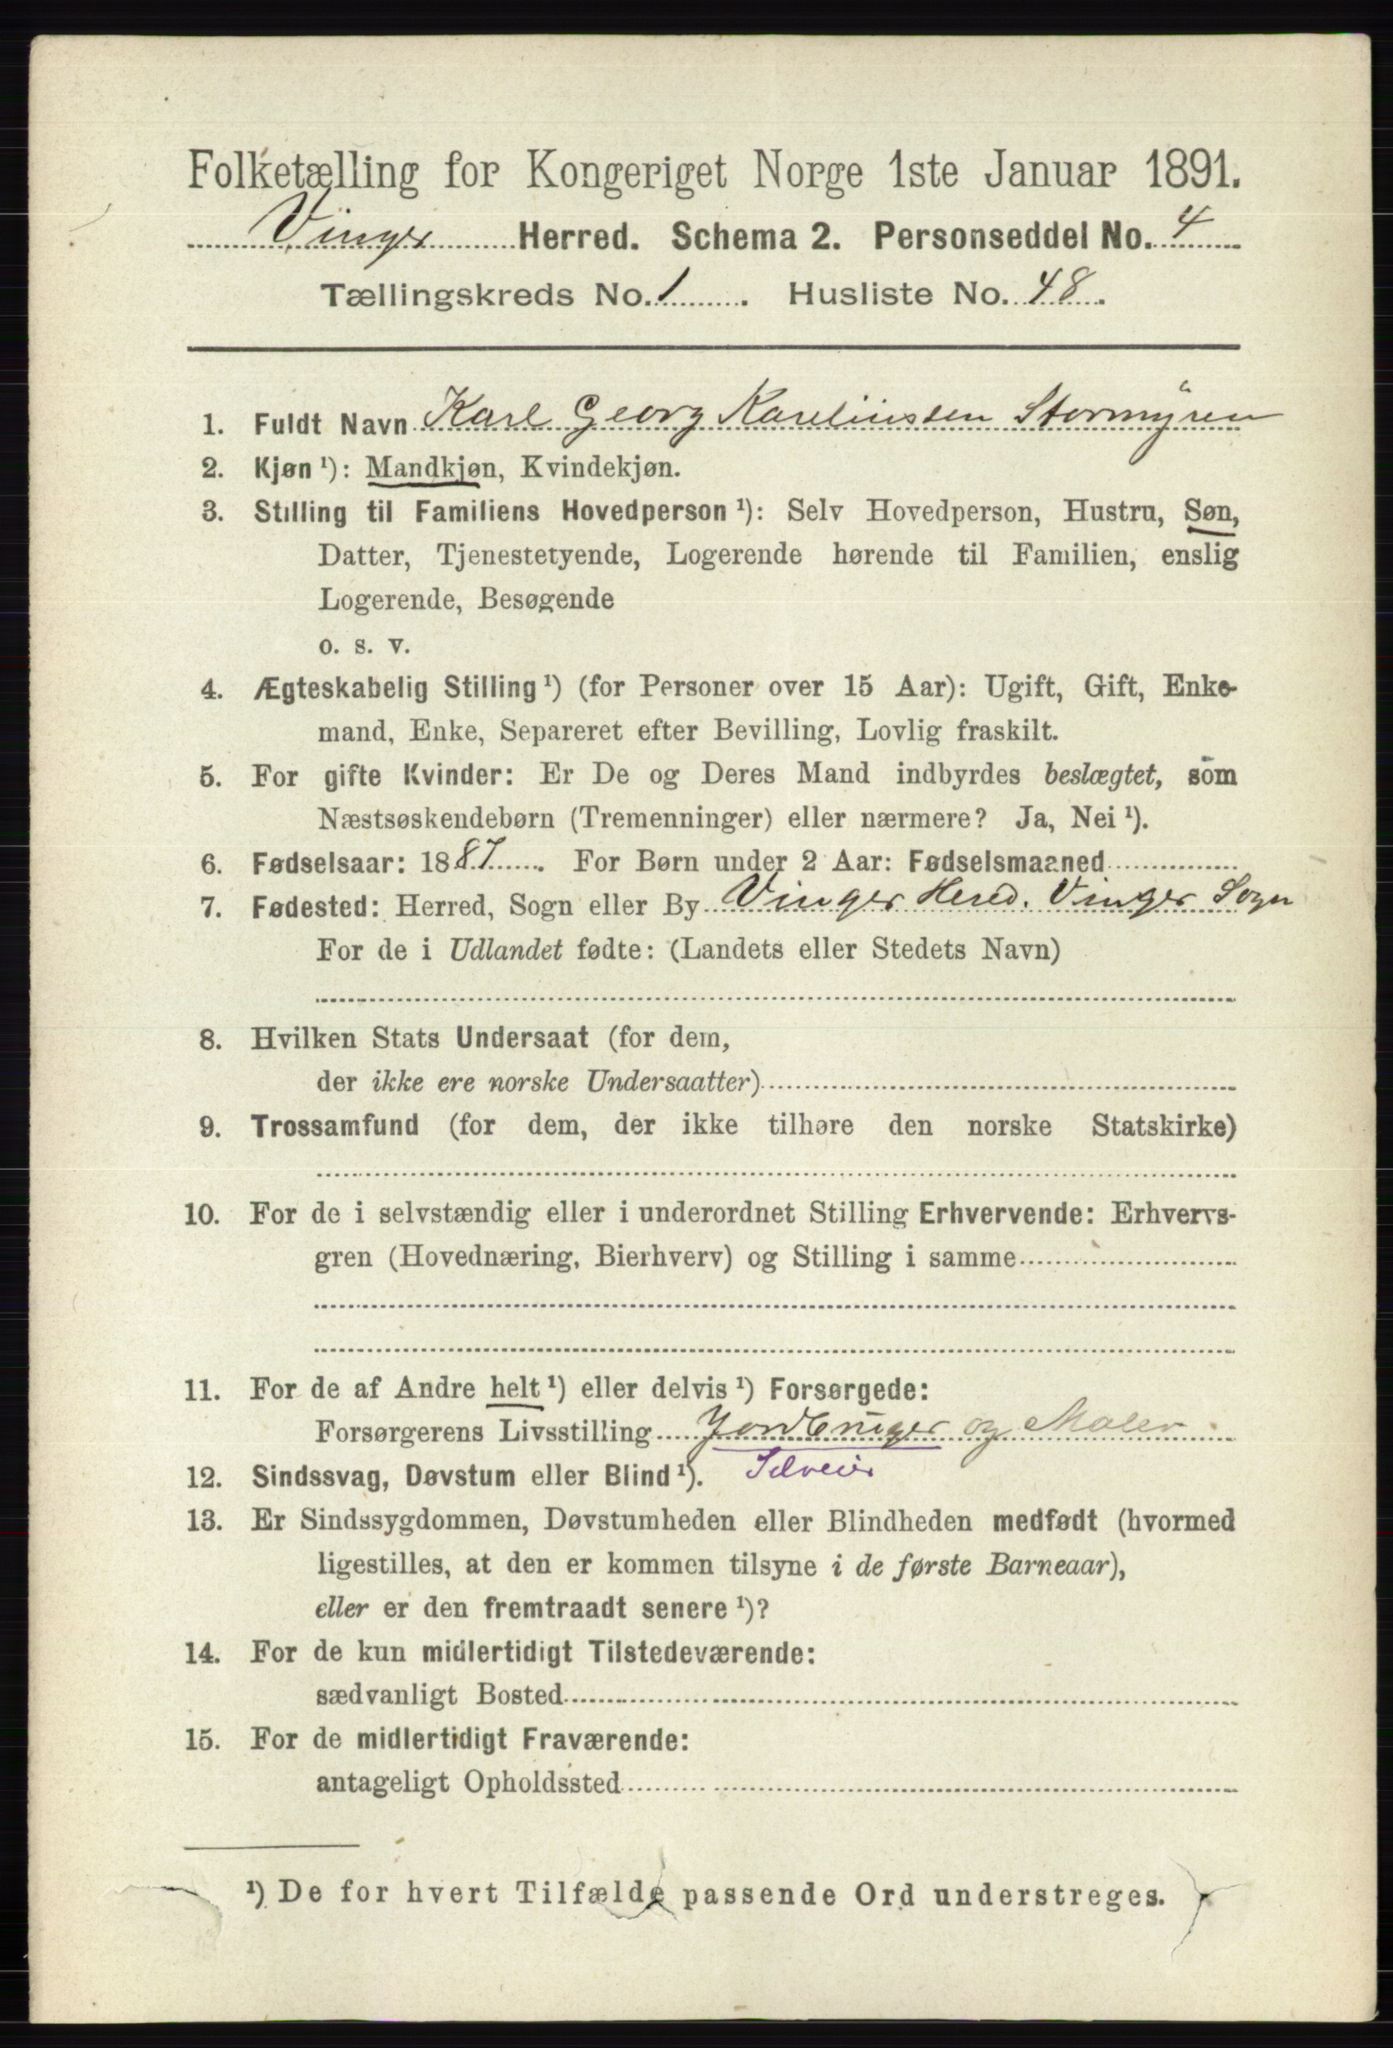 Folketælling for Kongeriget Norge 1ste Januar 1891.
Vinger Herred. Schema 2. Personseddel No. 4
Tællingskreds No. 1. Husliste No. 48.
1. Fuldt Navn Karl Georg Kareliussen Stormyren
2. Kjøn ¹): Mandkjøn, Kvindekjøn.
3. Stilling til Familiens Hovedperson ¹): Selv Hovedperson, Hustru, Søn,
Datter, Tjenestetyende, Logerende hørende til Familien, enslig
Logerende, Besøgende
o. s. v.
4. Ægteskabelig Stilling ¹) (for Personer over 15 Aar): Ugift, Gift, Enke-
mand, Enke, Separeret efter Bevilling, Lovlig fraskilt.
5. For gifte Kvinder: Er De og Deres Mand indbyrdes beslægtet, som
Næstsøskendebørn (Tremenninger) eller nærmere? Ja, Nei ¹).
6. Fødselsaar: 1887. For Børn under 2 Aar: Fødselsmaaned
7. Fødested: Herred, Sogn eller By Vinger Hered. Vinger Sogn
For de i Udlandet fødte: (Landets eller Stedets Navn)
8. Hvilken Stats Undersaat (for dem,
der ikke ere norske Undersaatter)
9. Trossamfund (for dem, der ikke tilhøre den norske Statskirke)
10. For de i selvstændig eller i underordnet Stilling Erhvervende: Erhvervs-
gren (Hovednæring, Bierhverv) og Stilling i samme
11. For de af Andre helt ¹) eller delvis ¹) Forsørgede:
Forsørgerens Livsstilling Jordbruger og Maler
12. Sindssvag, Døvstum eller Blind ¹). Selveier
13. Er Sindssygdommen, Døvstumheden eller Blindheden medfødt (hvormed
ligestilles, at den er kommen tilsyne i de første Barneaar),
eller er den fremtraadt senere ¹)?
14. For de kun midlertidigt Tilstedeværende:
sædvanligt Bosted
15. For de midlertidigt Fraværende:
antageligt Opholdssted
¹) De for hvert Tilfælde passende Ord understreges.